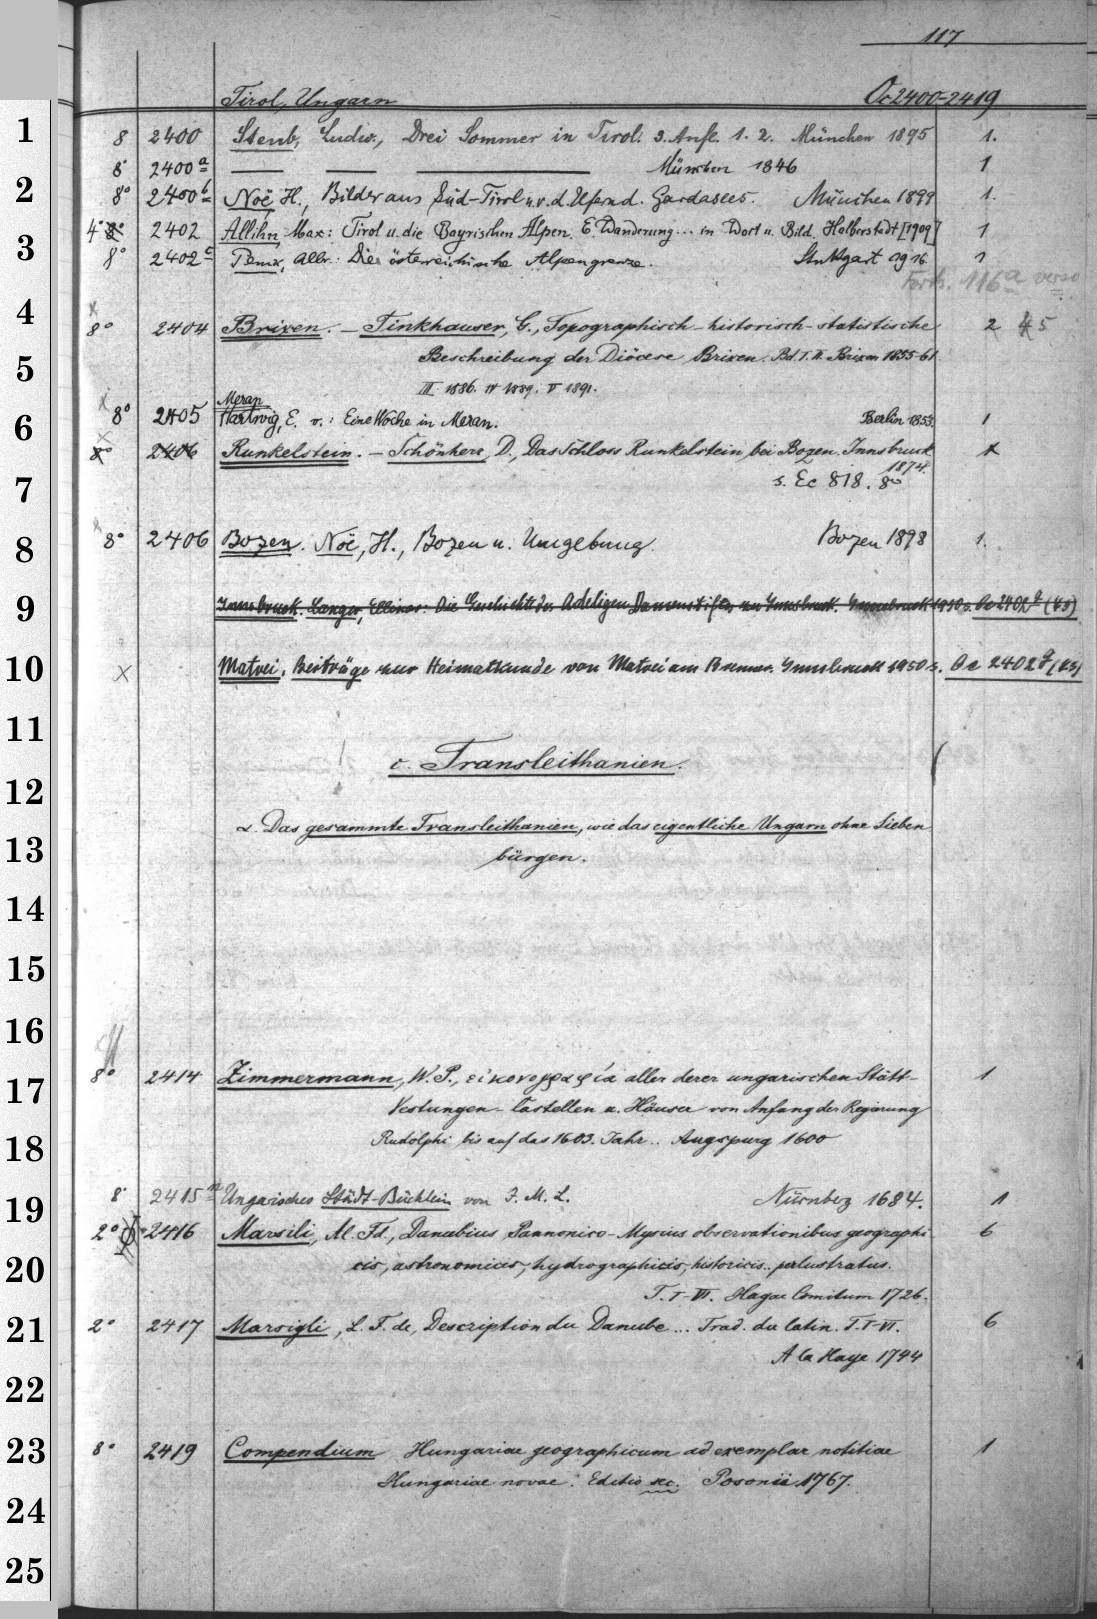 117
Tirol, Ungarn Oc 2400-2419
8 2400 Steub, Ludw., Drei Sommer in Tirol. 3. Aufl. 1. 2. München 1895 1.
8° 2400a — — — München 1846 1
8° 2400b Noë, H., Bilder aus Süd-Tirol u. v. d. Ufern d. Gardasees. München 1899 1.
4° 8° 2402 Allihn, Max: Tirol u. die Bayrischen Alpen. E. Wanderung... in Wort u. Bild. Halberstadt [1909] 1
8° 2402c Penck, Albr.: Die österreichische Alpengrenze. Stuttgart 1916 1
Forts. 116a verso
8° 2404 Brixen. — Tinkhauser, G., Topographisch-historisch-statistische 2 4 5
Beschreibung der Diöcese Brixen. Bd. I. II. Brixen 1855-61
III 1886. IV 1889. V 1891.
Meran
8° 2405 Hartwig, E. v.: Eine Woche in Meran. Berlin 1853. 1
8° 2406 Runkelstein. — Schönherr, D., Das Schloss Runkelstein bei Bozen. Innsbruck 1
1874.
s. Ec 818. 8°
8° 2406 Bozen. Noë, H., Bozen u. Umgebung. Bozen 1898 1.
Innsbruck. Langer, Ellinor: Die Geschichte des Adeligen Damenstiftes zu Innsbruck. Innsbruck 1950 s. Oc 2402g (43)
Matrei, Beiträge zur Heimatkunde von Matrei am Brenner. Innsbruck 1950 s. Oc 2402g (23)
c. Transleithanien.
α. Das gesammte Transleithanien, wie das eigentliche Ungarn ohne Sieben
bürgen.
8° 2414 Zimmermann, W. P., εἰκονογραφία aller derer ungarischen Stätt- 1
Vestungen- Castellen u. Häuser von Anfang der Regierung
Rudolphi bis auf das 1603. Jahr.. Augspurg 1600
8° 2415 Ungarisches Städt-Büchlein von J. M. L. Nürnbg 1684. 1
2° 2416 Marsili, Al. Fd., Danubius Pannonico-Mysius observationibus geographi 6
cis, astronomicis, hydrographicis, historicis.. perlustratus.
T. I-VI. Hagae Comitum 1726.
2° 2417 Marsigli, L. F. de, Description du Danube ... Trad. du latin. T. I-VI. 6
A la Haye 1744
8° 2419 Compendium Hungariae geographicum ad exemplar notitiae 1
Hungariae novae. Editio sec. Posonii 1767.
1
2
3
4
5
6
7
8
9
10
11
12
13
14
15
16
17
18
19
20
21
22
23
24
25